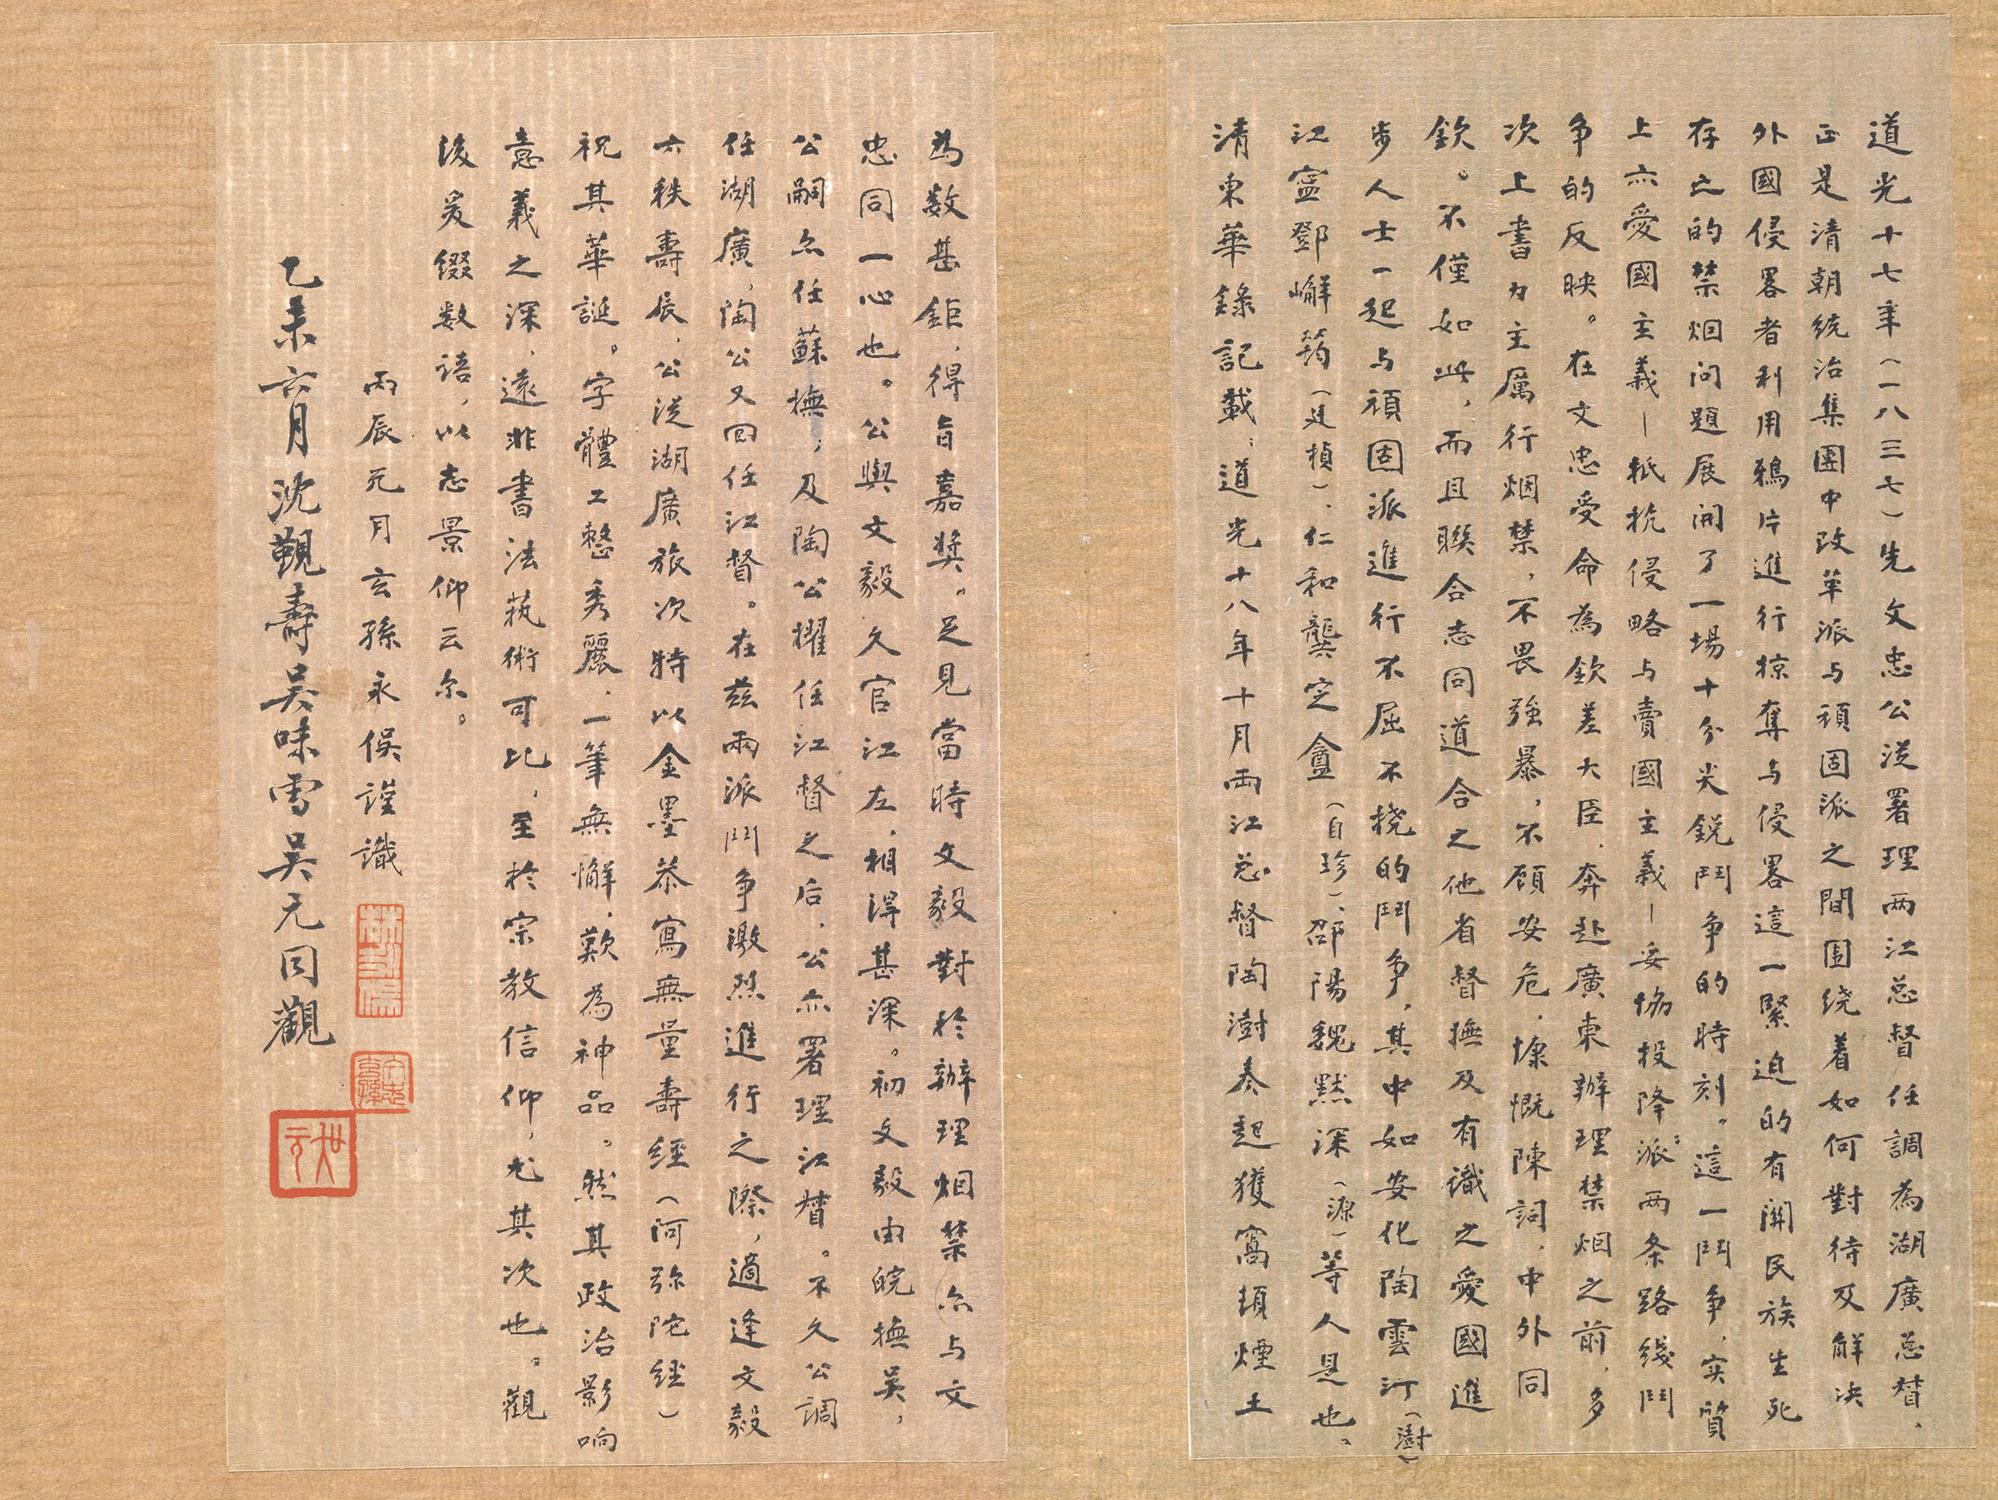 道光十七年（一八三七）先文忠公從署理两江总督任調為湖廣总督，
正是清朝統治集團中改革派与頑固派之間围绕着如何對待及解决
外國侵畧者利用鴉片進行掠奪与侵畧這一緊迫的有關民族生死
存亡的禁烟问題展開了一場十分尖銳鬥争的時刻。這一鬥争，实質
上亦愛國主義—抵抗侵略与賣國主義—妥協投降派：两条路线鬥
争的反映。在文忠受命為欽差大臣，奔赴廣東辦理禁烟之前，多
次上書力主厲行烟禁，不畏强暴，不顾安危，慷慨陳詞，中外同
欽。不僅如此，而且聯合志同道合之他省督撫及有識之愛國進
步人士一起与頑固派進行不屈不撓的鬥争，其中如安化陶雲汀（澍）
江寧鄧嶰筠（廷楨）、仁和龔定盦（自珍）、邵陽魏默深（源）等人是也。
清東華錄記載：道光十八年十月两江总督陶澍奏起獲窩頓煙土
為数甚鉅，得旨嘉獎。足見當時文毅對於辦理烟禁亦与文
忠同一心也。公與文毅久官江左，相得甚深。初文毅由皖撫吴，
公嗣亦任蘇撫；及陶公擢任江督之后，公亦署理江督。不久公調
任湖廣，陶公又回任江督。在兹兩派鬥争激烈進行之際，適逢文毅
六秩壽辰，公從湖廣旅次特以金墨恭寫無量壽經（阿弥陀經）
祝其華誕。字體工整秀麗，一筆無懈，歎為神品。然其政治影响
意義之深，遠非書法藝術可比，至於宗教信仰，尤其次也。觀
後爰綴数語，以志景仰云尔。
丙辰元月玄孫永俁謹識
乙未六月沈觀壽吴味雪吴元同觀